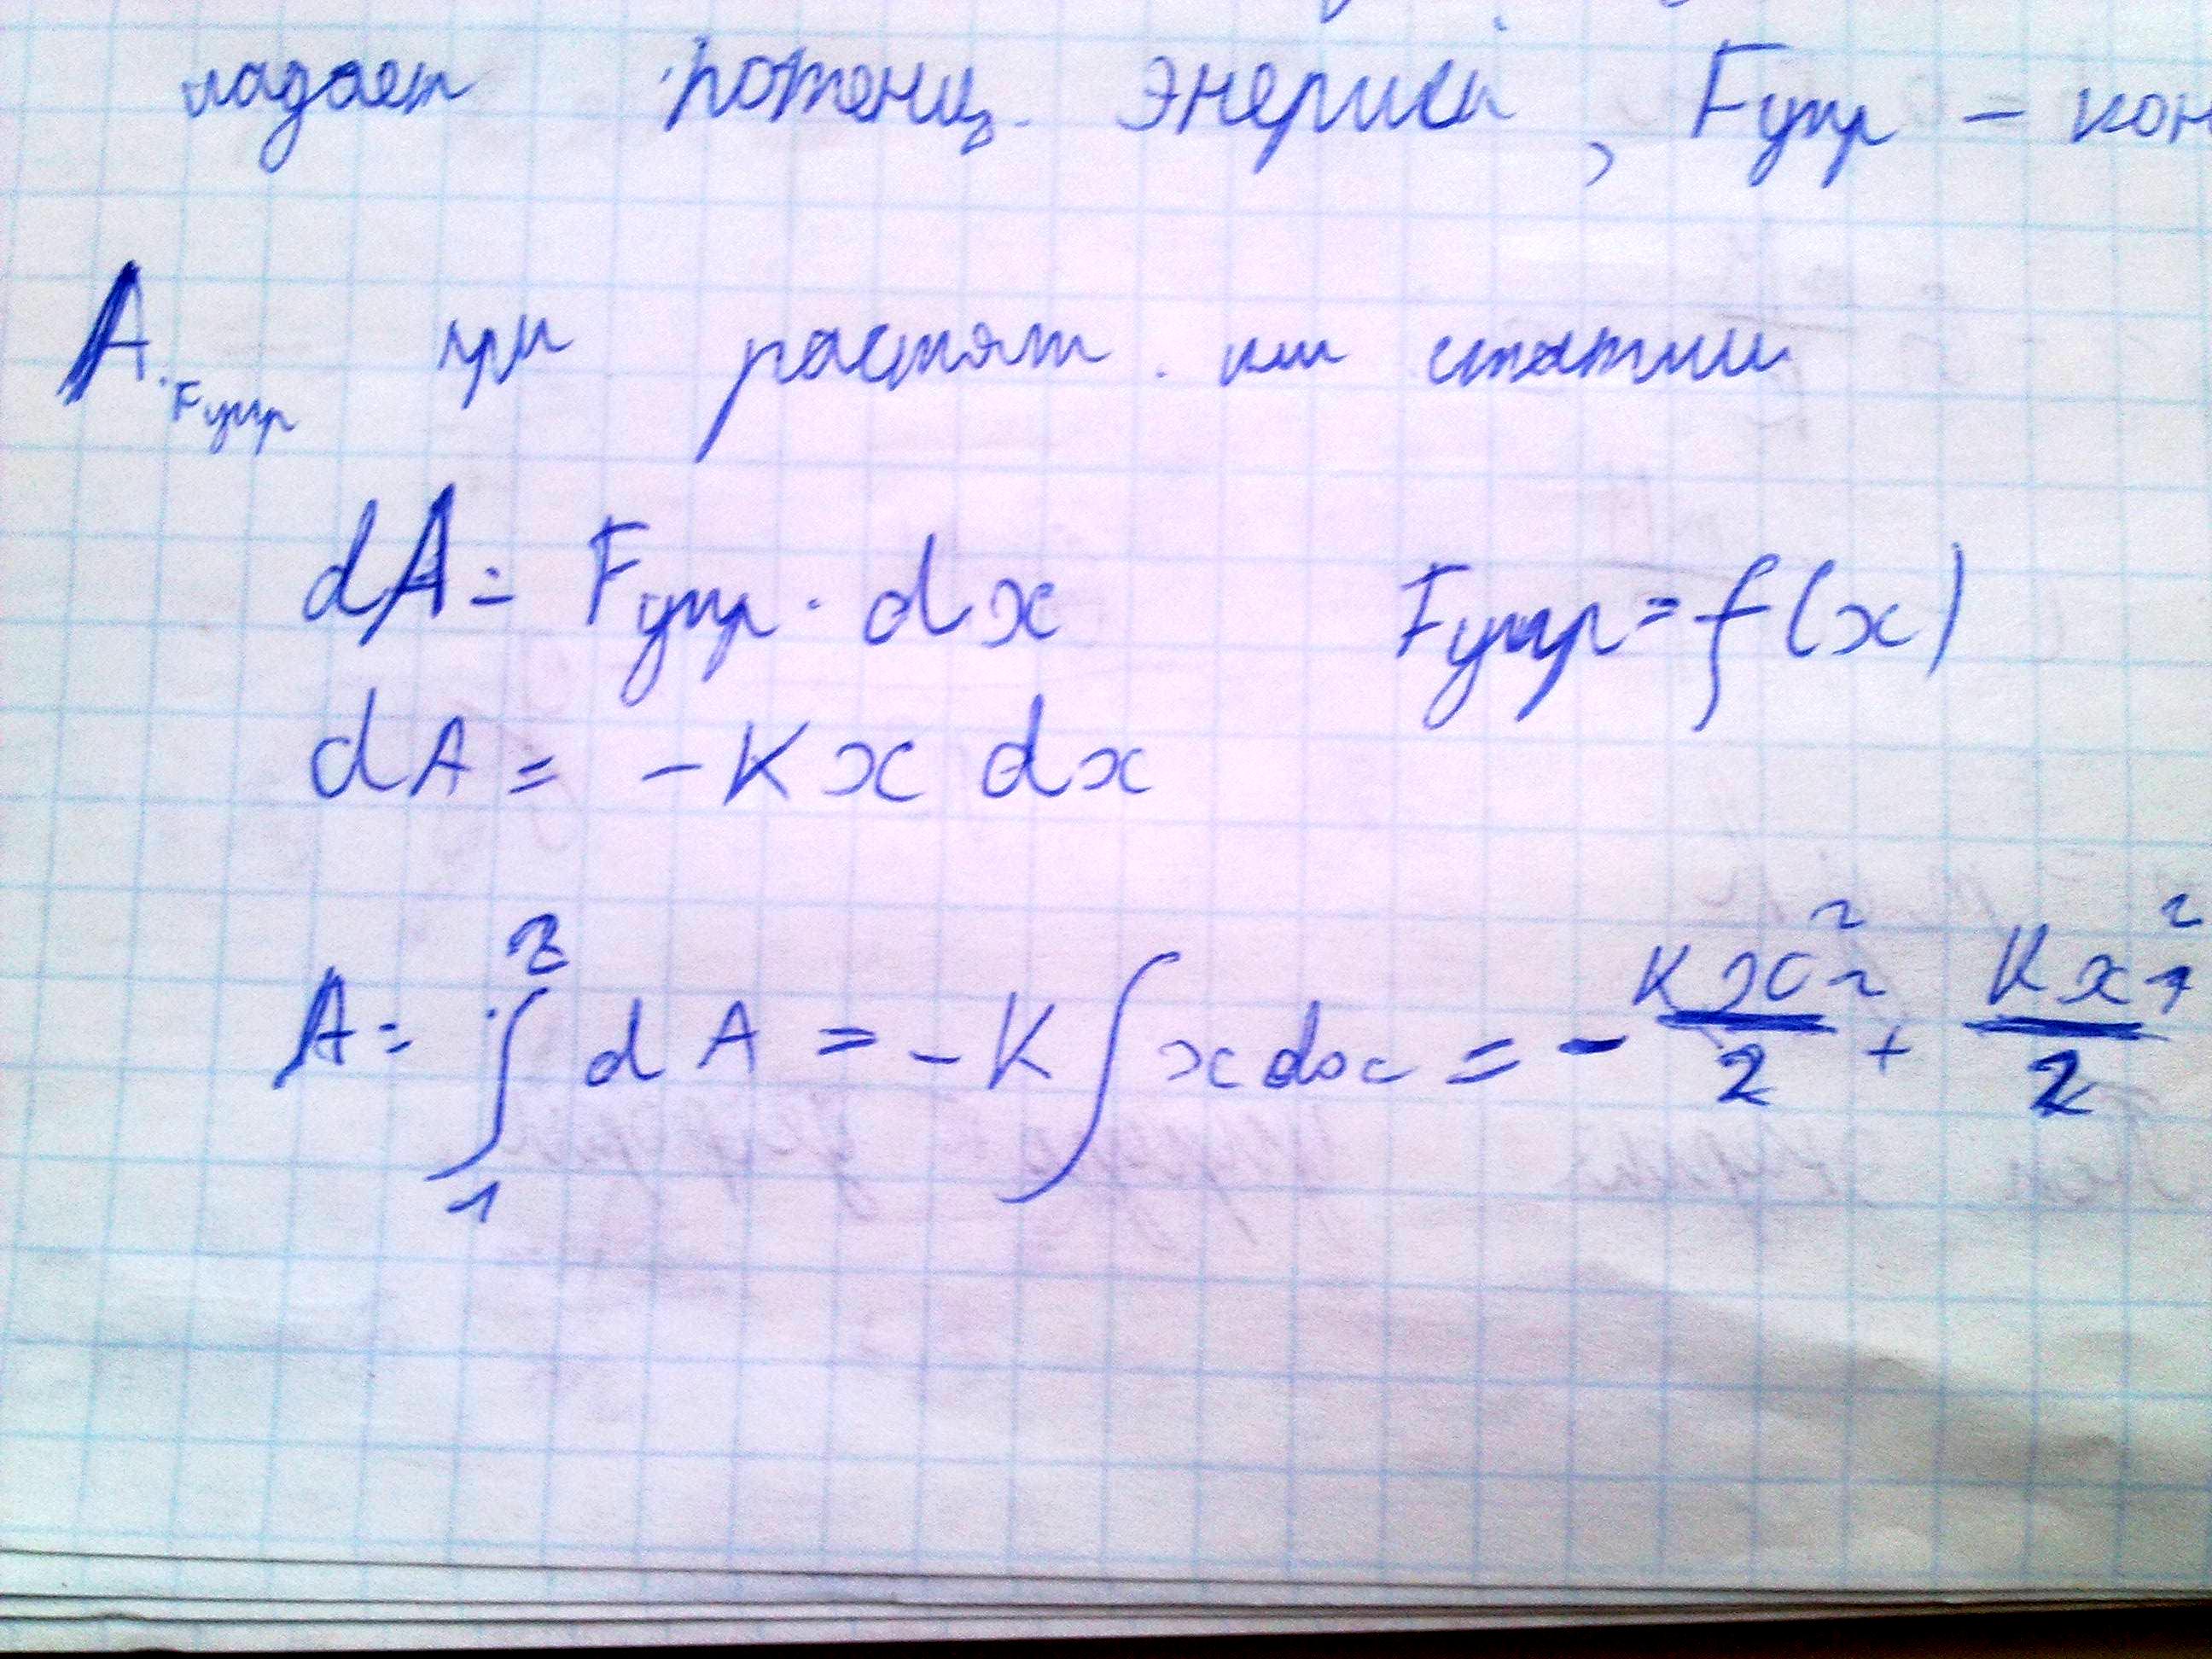 ладает потенц. энергией, Fупр – кон
A Fупр при растяж. или сжатии
dA = Fупр · dx Fупр = f(x)
dA = -Kx dx
A = ∫₁² dA = -K∫xdx = - Kx₂²/2 + Kx₁²/2